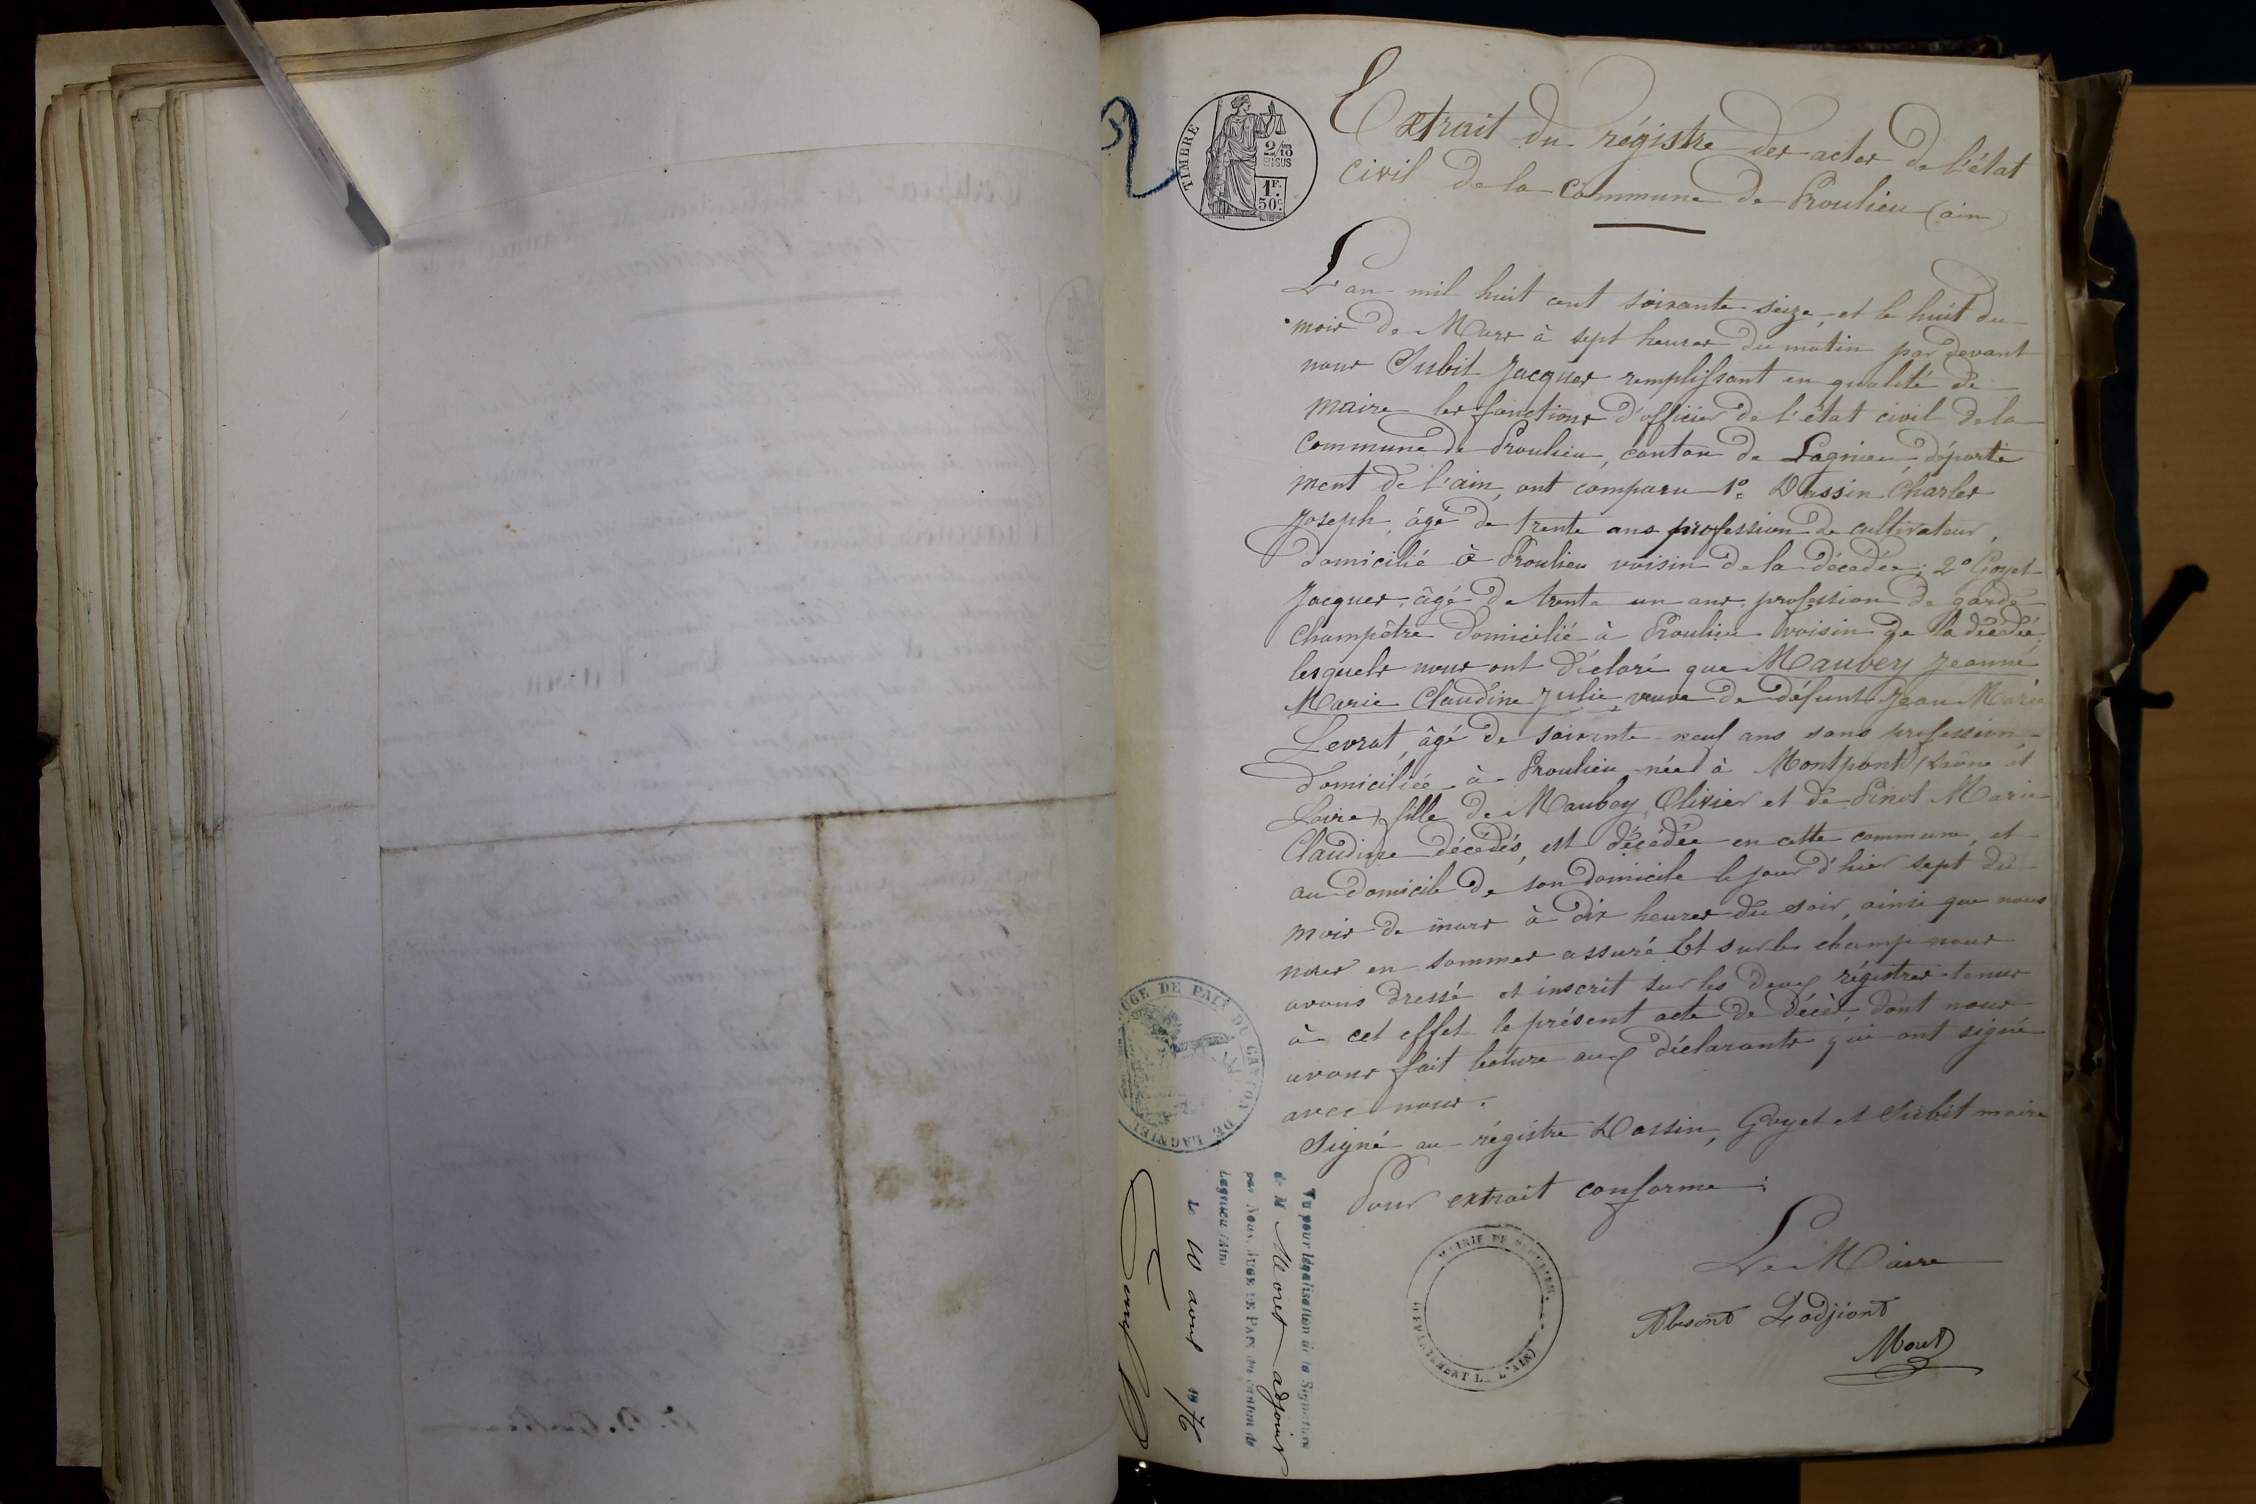 TIMBRE
2/10
EN SUS
1F.
50c.
Extrait du régistre des actes de l'état
civil de la commune de Proulieu (ain)
L'an mil huit cent soixante-seize, et le huit du
mois de Mars à sept heures du matin par devant
nous Subit Jacques remplissant en qualité de
maire les fonctions d'officier de l'état civil de la
Commune de Proulieu, canton de Lagnieu, départe
ment de l'ain, ont comparu 1° Dassin Charles
Joseph, âgé de trente ans profession de cultivateur,
domicilié à Proulieu voisin de la décédée; 2° Goyet
Jacques, âgé de trente un ans profession de garde
champêtre domicilié à Proulieu voisin de la décédée,
lesquels nous ont déclaré que Maubey Jeanne
Marie Claudine Julie, veuve de défunt Jean Marie
Levrat, âgé de soixante-neuf ans sans profession,
domiciliée à Proulieu née à Montpont (Saône et
Loire) fille de Maubey Olivier et de Pinot Marie
Claudine décédés, est décédée en cette commune, et
au domicile de son domicile le jour d'hier sept du
mois de mars à dix heures du soir, ainsi que nous
nous en sommes assuré Et sur le champ nous
avons dressé et inscrit sur les deux régistres tenus
à cet effet le présent acte de décès dont nous
avons fait lecture aux déclarants qui ont signé
avec nous.
Signé au régistre Dassin, Goyet et Subit maire
Pour extrait conforme:
Le Maire
Absent L'adjiont
Moret
MAIRIE DE
DEPARTEMENT DE L'AIN
JUGE DE PAIX DU CANTON DE LAGNIEU
Vu pour légalisation de la Signature
de M Moret adjoint
par Nous, JUGE DE PAIX du canton de
Lagnieu (Ain)
Le 10 avril 1876